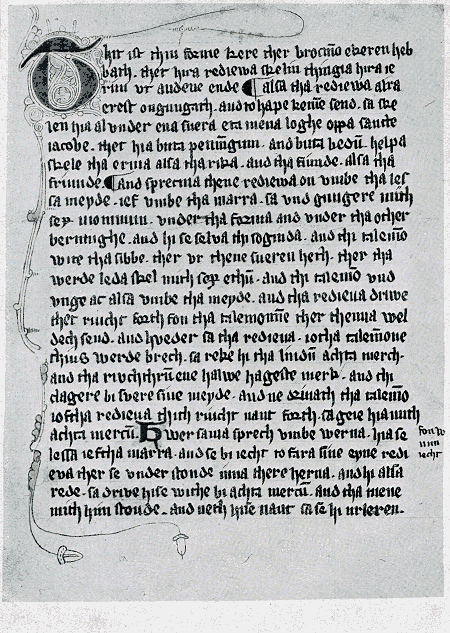 Thit ist thiu forme kere ther brocmō ekeren heb
bath. thet hira rediewa skelin thingia hira ie
rim vt anda ende ¶ alsa tha rediewa alra
erest ongungath. and to hape kemē send. sa ske
len hia alvnder ena swera ena mena loghe oppa sancte
iacobe. thet hia buta pennīgum. and buta bedū. helpa
skele tha erma alsa tha rika. and tha fiunde. alsa tha
friunde. ¶ and sprecma thene rediewa on vmbe tha les
sa meyde. ief vmbe tha marra. sa vnd gungere mith
sex monnum. vnder tha forma and vnder tha other
bernnghe. and hi se selua thi sogunda. and thi talemō
wite tha sibbe. ther vr thene sweren heth. ther tha
werde leda skel mith sex ethū. and thi talemō vnd
vnge ac alsa vmbe tha meyde. and tha redieua driwe
thet riucht forth fon tha talemonne ther thenna wel
dech send. and hweder sa tha redieua. ioftha talemōne
thius werde brech. sa reke hi tha liudū achta merch.
and tha riuchthrū ene halwe hageste merk. and thi
clagere bi twere sine meyde. and ne driuath tha talemō
ioftha redieua thich riucht naut forth. sa geie hia mith
achta mercū. Hwersama sprech vmbe werna. hia se
lessa ieftha marra. and se bi iecht to fara sine epne redi
eva ther se vnder stonde nina there herna. and hi alsa
rede. sa driwe hise withe bi achta mercū. and tha mene
mith him stonde. and neth hise naut sa se hi urleren.